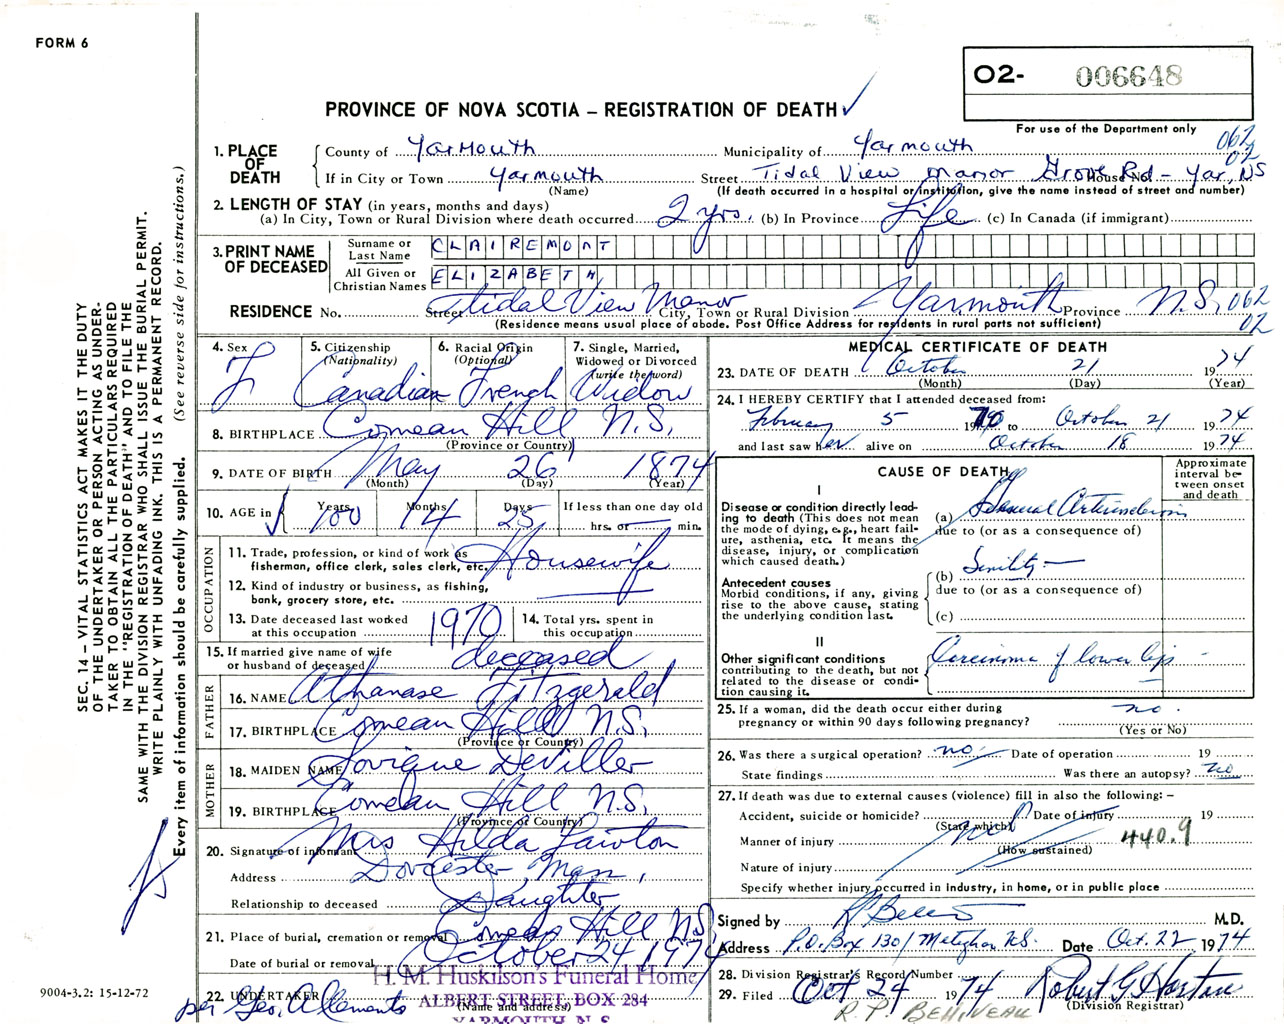 FORM 6
O2- 006648
PROVINCE OF NOVA SCOTIA – REGISTRATION OF DEATH ✓
For use of the Department only
062
02
1. PLACE OF DEATH
County of Yarmouth Municipality of Yarmouth
If in City or Town Yarmouth Street Tidal View Manor Grove Rd – Yar, NS House No.
(Name) (If death occurred in a hospital or institution, give the name instead of street and number)
2. LENGTH OF STAY (in years, months and days)
(a) In City, Town or Rural Division where death occurred 2 yrs. (b) In Province Life (c) In Canada (if immigrant)
3. PRINT NAME OF DECEASED
Surname or Last Name CLAIREMONT
All Given or Christian Names ELIZABETH
RESIDENCE No. Street Tidal View Manor City, Town or Rural Division Yarmouth Province N.S. 062
02
(Residence means usual place of abode. Post Office Address for residents in rural parts not sufficient)
4. Sex F
5. Citizenship (Nationality) Canadian
6. Racial Origin (Optional) French
7. Single, Married, Widowed or Divorced (write the word) Widow
8. BIRTHPLACE Comeau Hill N.S.
(Province or Country)
9. DATE OF BIRTH May 26 1874
(Month) (Day) (Year)
10. AGE in Years 100 Months 4 Days 25 If less than one day old
hrs. or min.
OCCUPATION
11. Trade, profession, or kind of work as fisherman, office clerk, sales clerk, etc. Housewife
12. Kind of industry or business, as fishing, bank, grocery store, etc.
13. Date deceased last worked at this occupation 1970
14. Total yrs. spent in this occupation
15. If married give name of wife or husband of deceased deceased
FATHER
16. NAME Athanase Fitzgerald
17. BIRTHPLACE Comeau Hill N.S.
(Province or Country)
MOTHER
18. MAIDEN NAME DeViller
19. BIRTHPLACE Comeau Hill N.S.
(Province or Country)
20. Signature of informant Mrs Hilda Lawton
Address Dorcester, Mass,
Relationship to deceased Daughter
21. Place of burial, cremation or removal Comeau Hill NS
Date of burial or removal October 24 1974
22. UNDERTAKER H. M. Huskilson's Funeral Home
per Geo. (Name and address)
ALBERT STREET, BOX 284
YARMOUTH, N. S.
MEDICAL CERTIFICATE OF DEATH
23. DATE OF DEATH October 21 1974
(Month) (Day) (Year)
24. I HEREBY CERTIFY that I attended deceased from:
February 5 1970 to October 21 1974
and last saw her alive on October 18 1974
CAUSE OF DEATH
Approximate interval between onset and death
I
Disease or condition directly leading to death (This does not mean the mode of dying, e.g., heart failure, asthenia, etc. It means the disease, injury, or complication which caused death.)
(a)
due to (or as a consequence of)
Antecedent causes
Morbid conditions, if any, giving rise to the above cause, stating the underlying condition last.
(b) Senility
due to (or as a consequence of)
(c)
II
Other significant conditions contributing to the death, but not related to the disease or condition causing it.
Carcinoma of lower lip
25. If a woman, did the death occur either during pregnancy or within 90 days following pregnancy? no.
(Yes or No)
26. Was there a surgical operation? no Date of operation 19
State findings Was there an autopsy? no
27. If death was due to external causes (violence) fill in also the following: –
Accident, suicide or homicide? Date of injury 19
(State which)
Manner of injury 440.9
(How sustained)
Nature of injury
Specify whether injury occurred in industry, in home, or in public place
Signed by M.D.
Address P.O. Box 130 / Meteghan N.S. Date Oct. 22 1974
28. Division Registrar's Record Number
29. Filed Oct 24 1974 Robert G Horton
(Division Registrar)
R. P. BELLIVEAU
SEC. 14 – VITAL STATISTICS ACT MAKES IT THE DUTY
OF THE UNDERTAKER OR PERSON ACTING AS UNDERTAKER
TO OBTAIN ALL THE PARTICULARS REQUIRED
IN THE "REGISTRATION OF DEATH" AND TO FILE THE
SAME WITH THE DIVISION REGISTRAR WHO SHALL ISSUE THE BURIAL PERMIT.
WRITE PLAINLY WITH UNFADING INK. THIS IS A PERMANENT RECORD.
Every item of information should be carefully supplied. (See reverse side for instructions.)
9004-3.2: 15-12-72